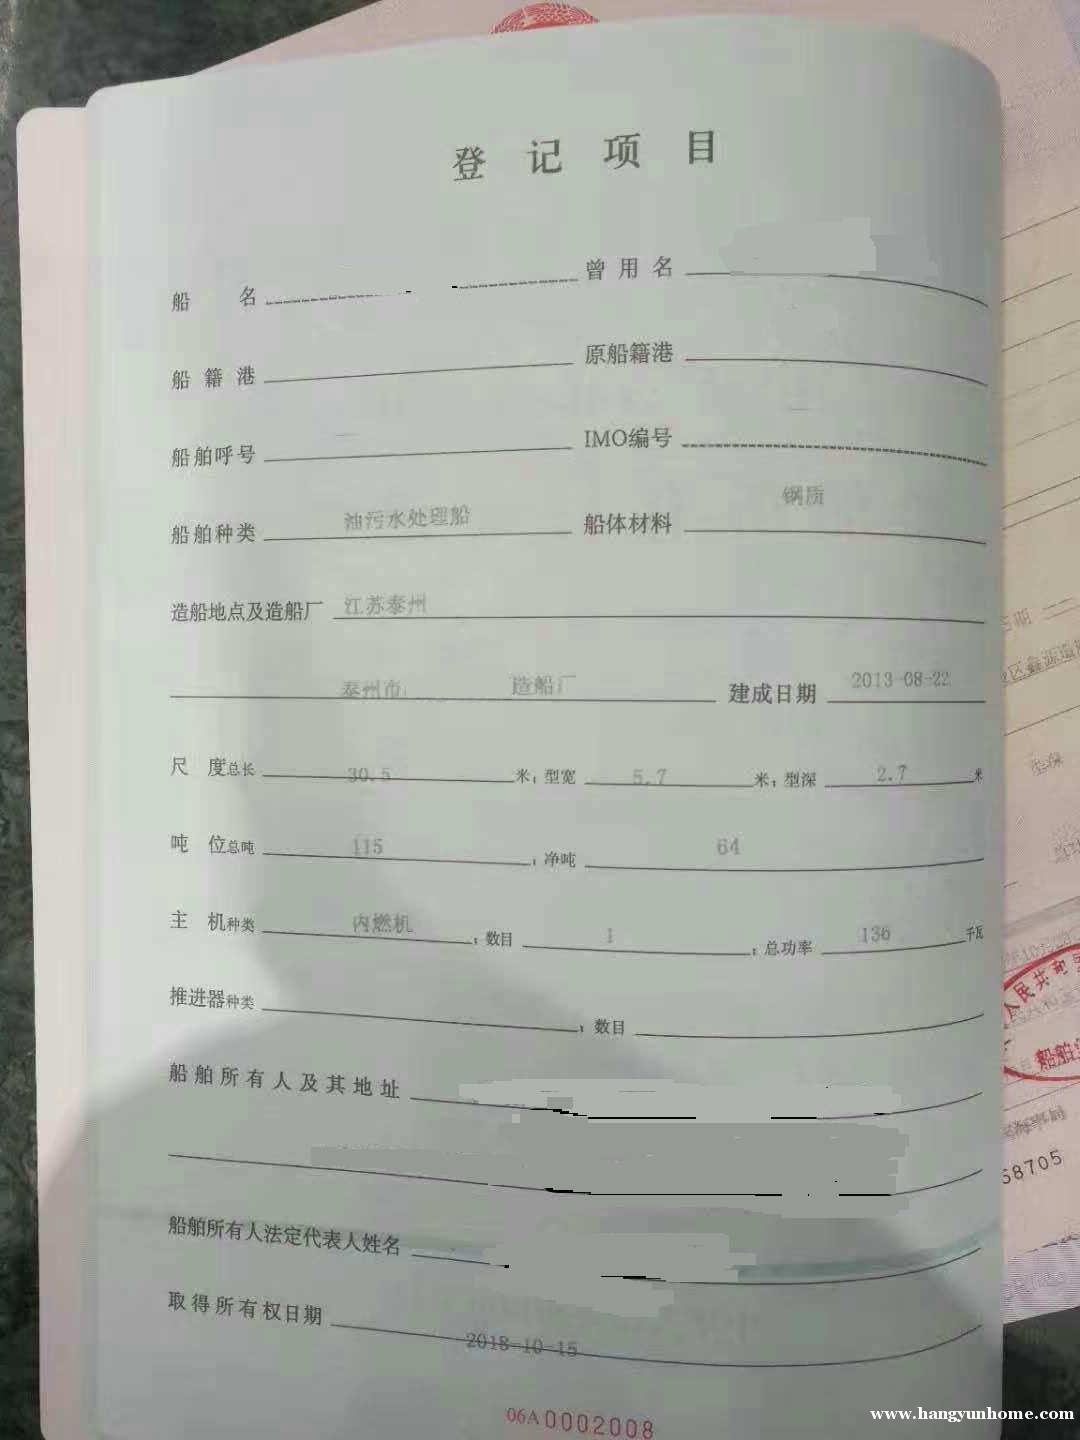 登记项目
船 名 曾用名
船籍港 原船籍港
船舶呼号 — IMO编号 —
船舶种类 油污水处理船 船体材料 钢质
造船地点及造船厂 江苏泰州
泰州市 造船厂 建成日期 2013-08-22
尺 度总长 30.5 米；型宽 5.7 米；型深 2.7 米
吨 位总吨 115 ；净吨 64
主 机种类 内燃机 ；数目 1 ；总功率 136 千瓦
推进器种类 ；数目
船舶所有人及其地址
船舶所有人法定代表人姓名
取得所有权日期 2018-10-15
06A0002008
日期
型深
人民共和
船舶
海事局
58705
www.hangyunhome.com